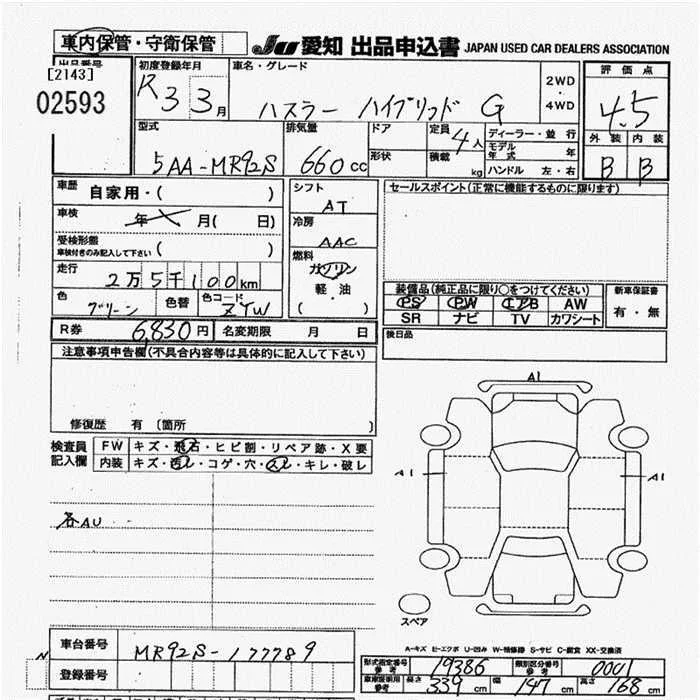 車内保管・守衛保管 JU 愛知 出品申込書 JAPAN USED CAR DEALERS ASSOCIATION
出品番号 初度登録年月 車名・グレード 評価点
[2143] R3 3月 ハスラー ハイブリッド G 2WD ・ 4WD 4.5
02593
外装 内装
型式 排気量 ドア 定員 4人 ディーラー・並行 B B
5AA-MR92S 660cc 形状 積載 kg モデル年式 年
ハンドル 左・右
車歴 自家用・( ) シフト AT セールスポイント(正常に機能するものに限ります)
車検 年 月( 日) 冷房 AAC
受検形態 車検付きのみ記入して下さい ( ) 燃料 ガソリン
走行 2万5千100km 軽・油
色 グリーン 色替 色コード ZYW ( )
装備品(純正品に限り○をつけてください) 新車保証書
PS PW エアB AW 有・無
SR ナビ TV カワシート
R券 6,830円 名変期限 月 日 後日品
注意事項申告欄(不具合内容等は具体的に記入して下さい)
修復歴 有 〔箇所 〕
検査員記入欄 FW キズ・飛石・ヒビ割・リペア跡・X要
内装 キズ・汚レ・コゲ・穴・スレ・キレ・破レ
各AU
A1
A1 A1
スペア
A-キズ E-エクボ U-凹み W-補修跡 S-サビ C-腐食 XX-交換済
車台番号 MR92S-177789
N
登録番号
型式指定番号 参考 19386 類別区分番号 参考 0001
長さ 339cm 幅 147cm 高さ 168cm